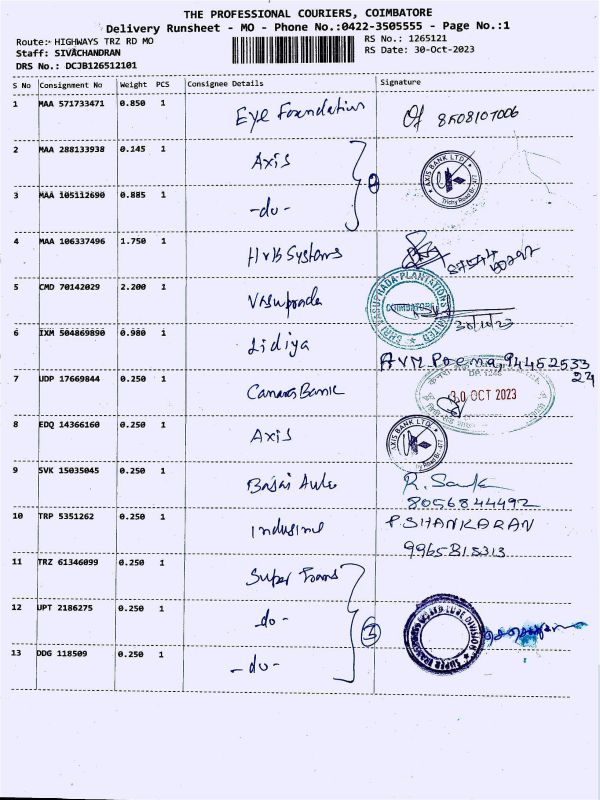 THE PROFESSIONAL COURIERS, COIMBATORE
Delivery Runsheet - MO - Phone No.:0422-3505555 - Page No.:1
Route:- HIGHWAYS TRZ RD MO
RS No.: 1265121
Staff: SIVACHANDRAN
RS Date: 30-Oct-2023
DRS No.: DCJB126512101
S No Consignment No Weight PCS Consignee Details Signature
1 MAA 571733471 0.850 1 Eye Foundation
2 MAA 288133938 0.145 1 Axis AXIS BANK LTD
3 MAA 105112690 0.885 1 -do-
4 MAA 106337496 1.750 1 Systems
5 CMD 70142029 2.200 1 Vasuprada VASUPRADA PLANTATIONS COIMBATORE
30/10/23
6 IXM 504869890 0.980 1 Lidiya
AVM Poema, 94452533
24
7 UDP 17669844 0.250 1 Canara Bank 30 OCT 2023
8 EDQ 14366160 0.250 1 Axis AXIS BANK LTD
9 SVK 15035045 0.250 1 Bajaj Auto R.
8056844492
10 TRP 5351262 0.250 1 Indusind P. SHANKARAN
9965815313
11 TRZ 61346099 0.250 1 Super
12 UPT 2186275 0.250 1 -do- LUBE DIVISION
13 DDG 118509 0.250 1 -do-